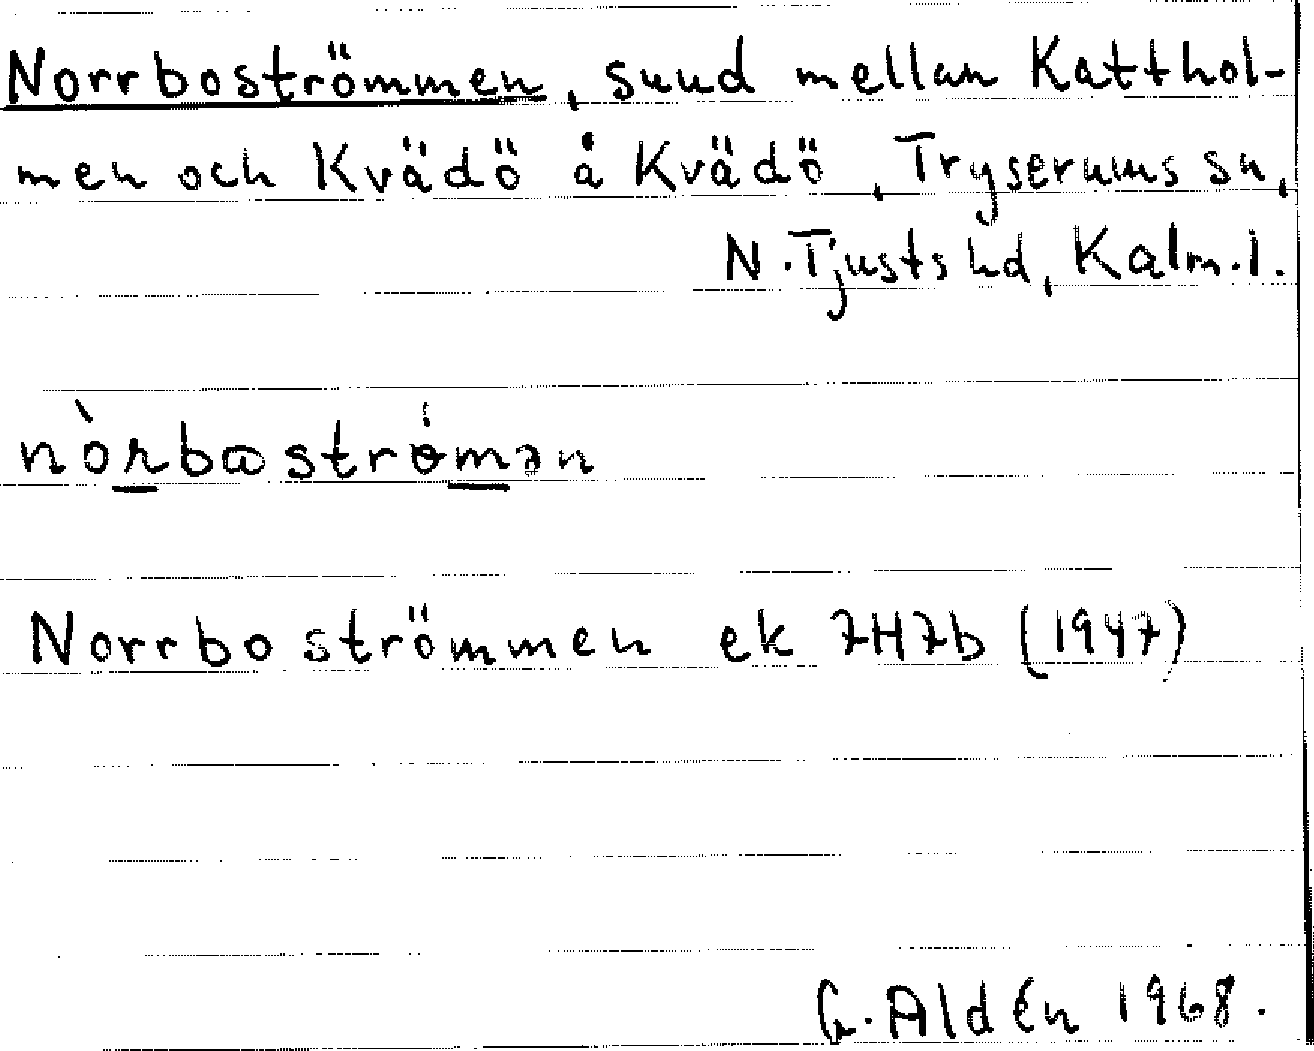 Norrboströmmen, sund mellan Kätthol-
men och Kvädö å Kvädö, Tryserums sn,
N. Tjusts hd, Kalm. l.
nòrbɷströ́mən
Norrbo strömmen ek 7H7b (1947)
G. Aldén 1968.